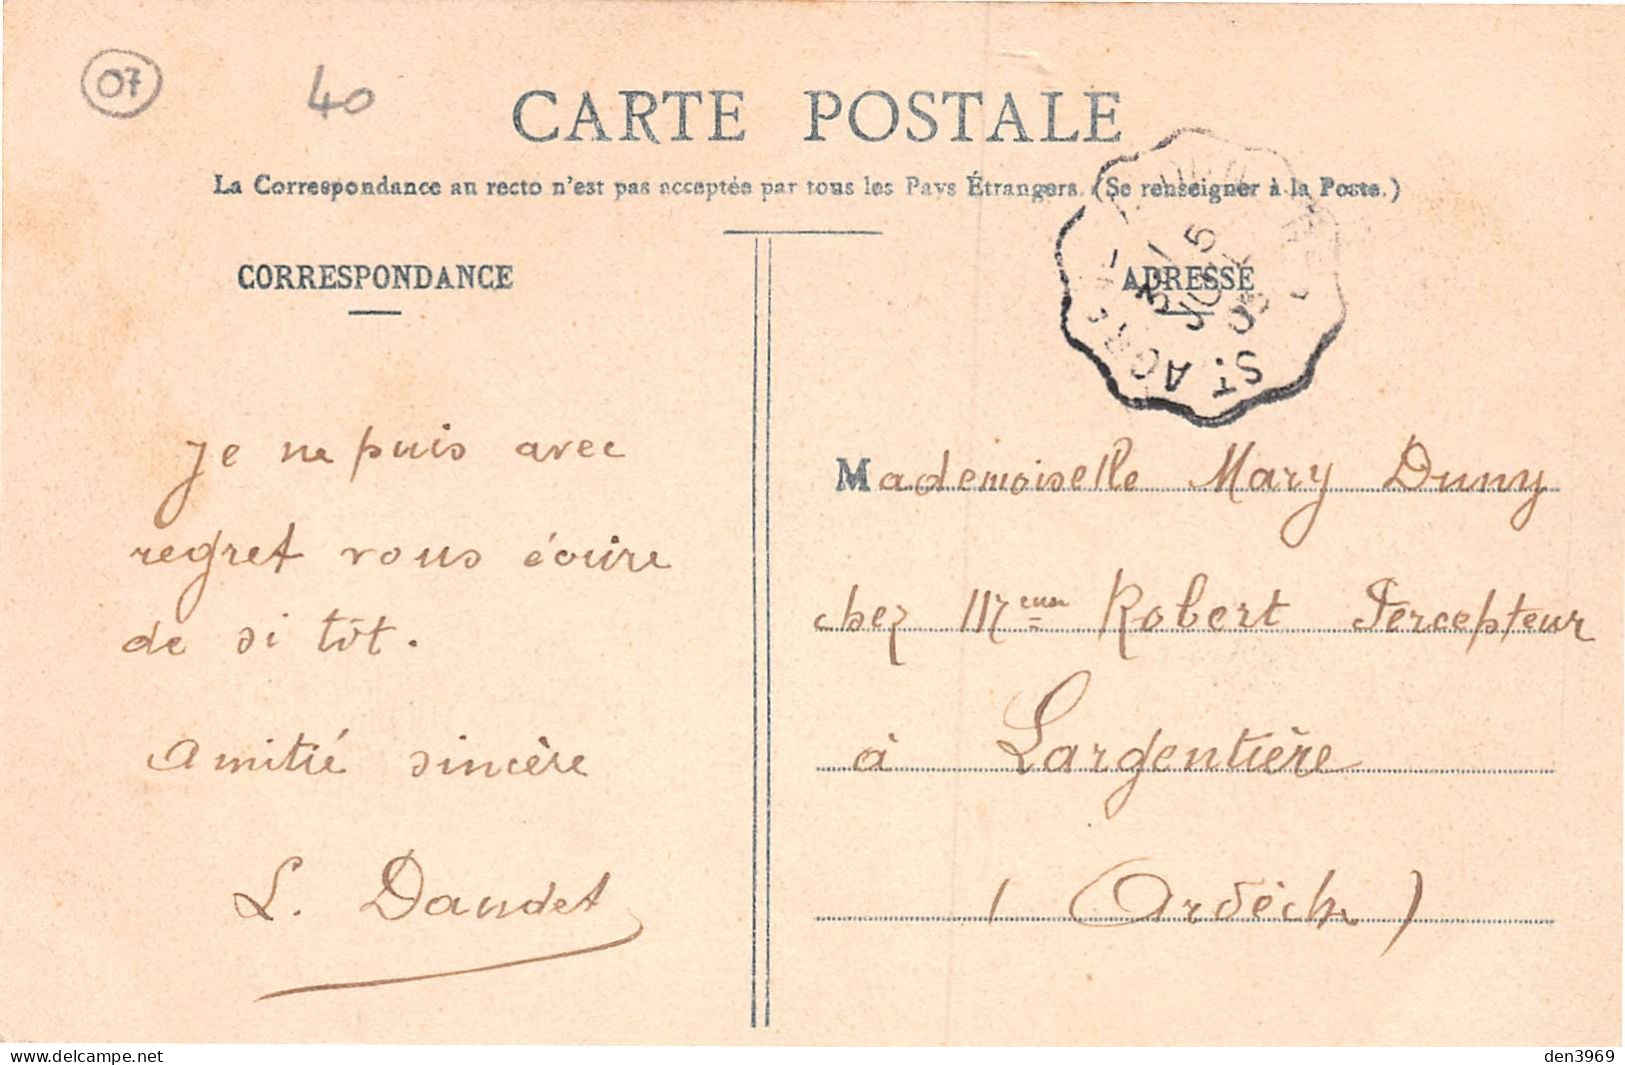 07
40
CARTE POSTALE
La Correspondance au recto n'est pas acceptée par tous les Pays Étrangers. (Se renseigner à la Poste.)
CORRESPONDANCE
ADRESSE
ST. AGRÈVE
5
05
Je ne puis avec
regret vous écrire
de si tôt.
Amitié sincère
L. Daudet
Mademoiselle Mary Duny
chez Robert Percepteur
à Largentière
(Ardèche)
den3969